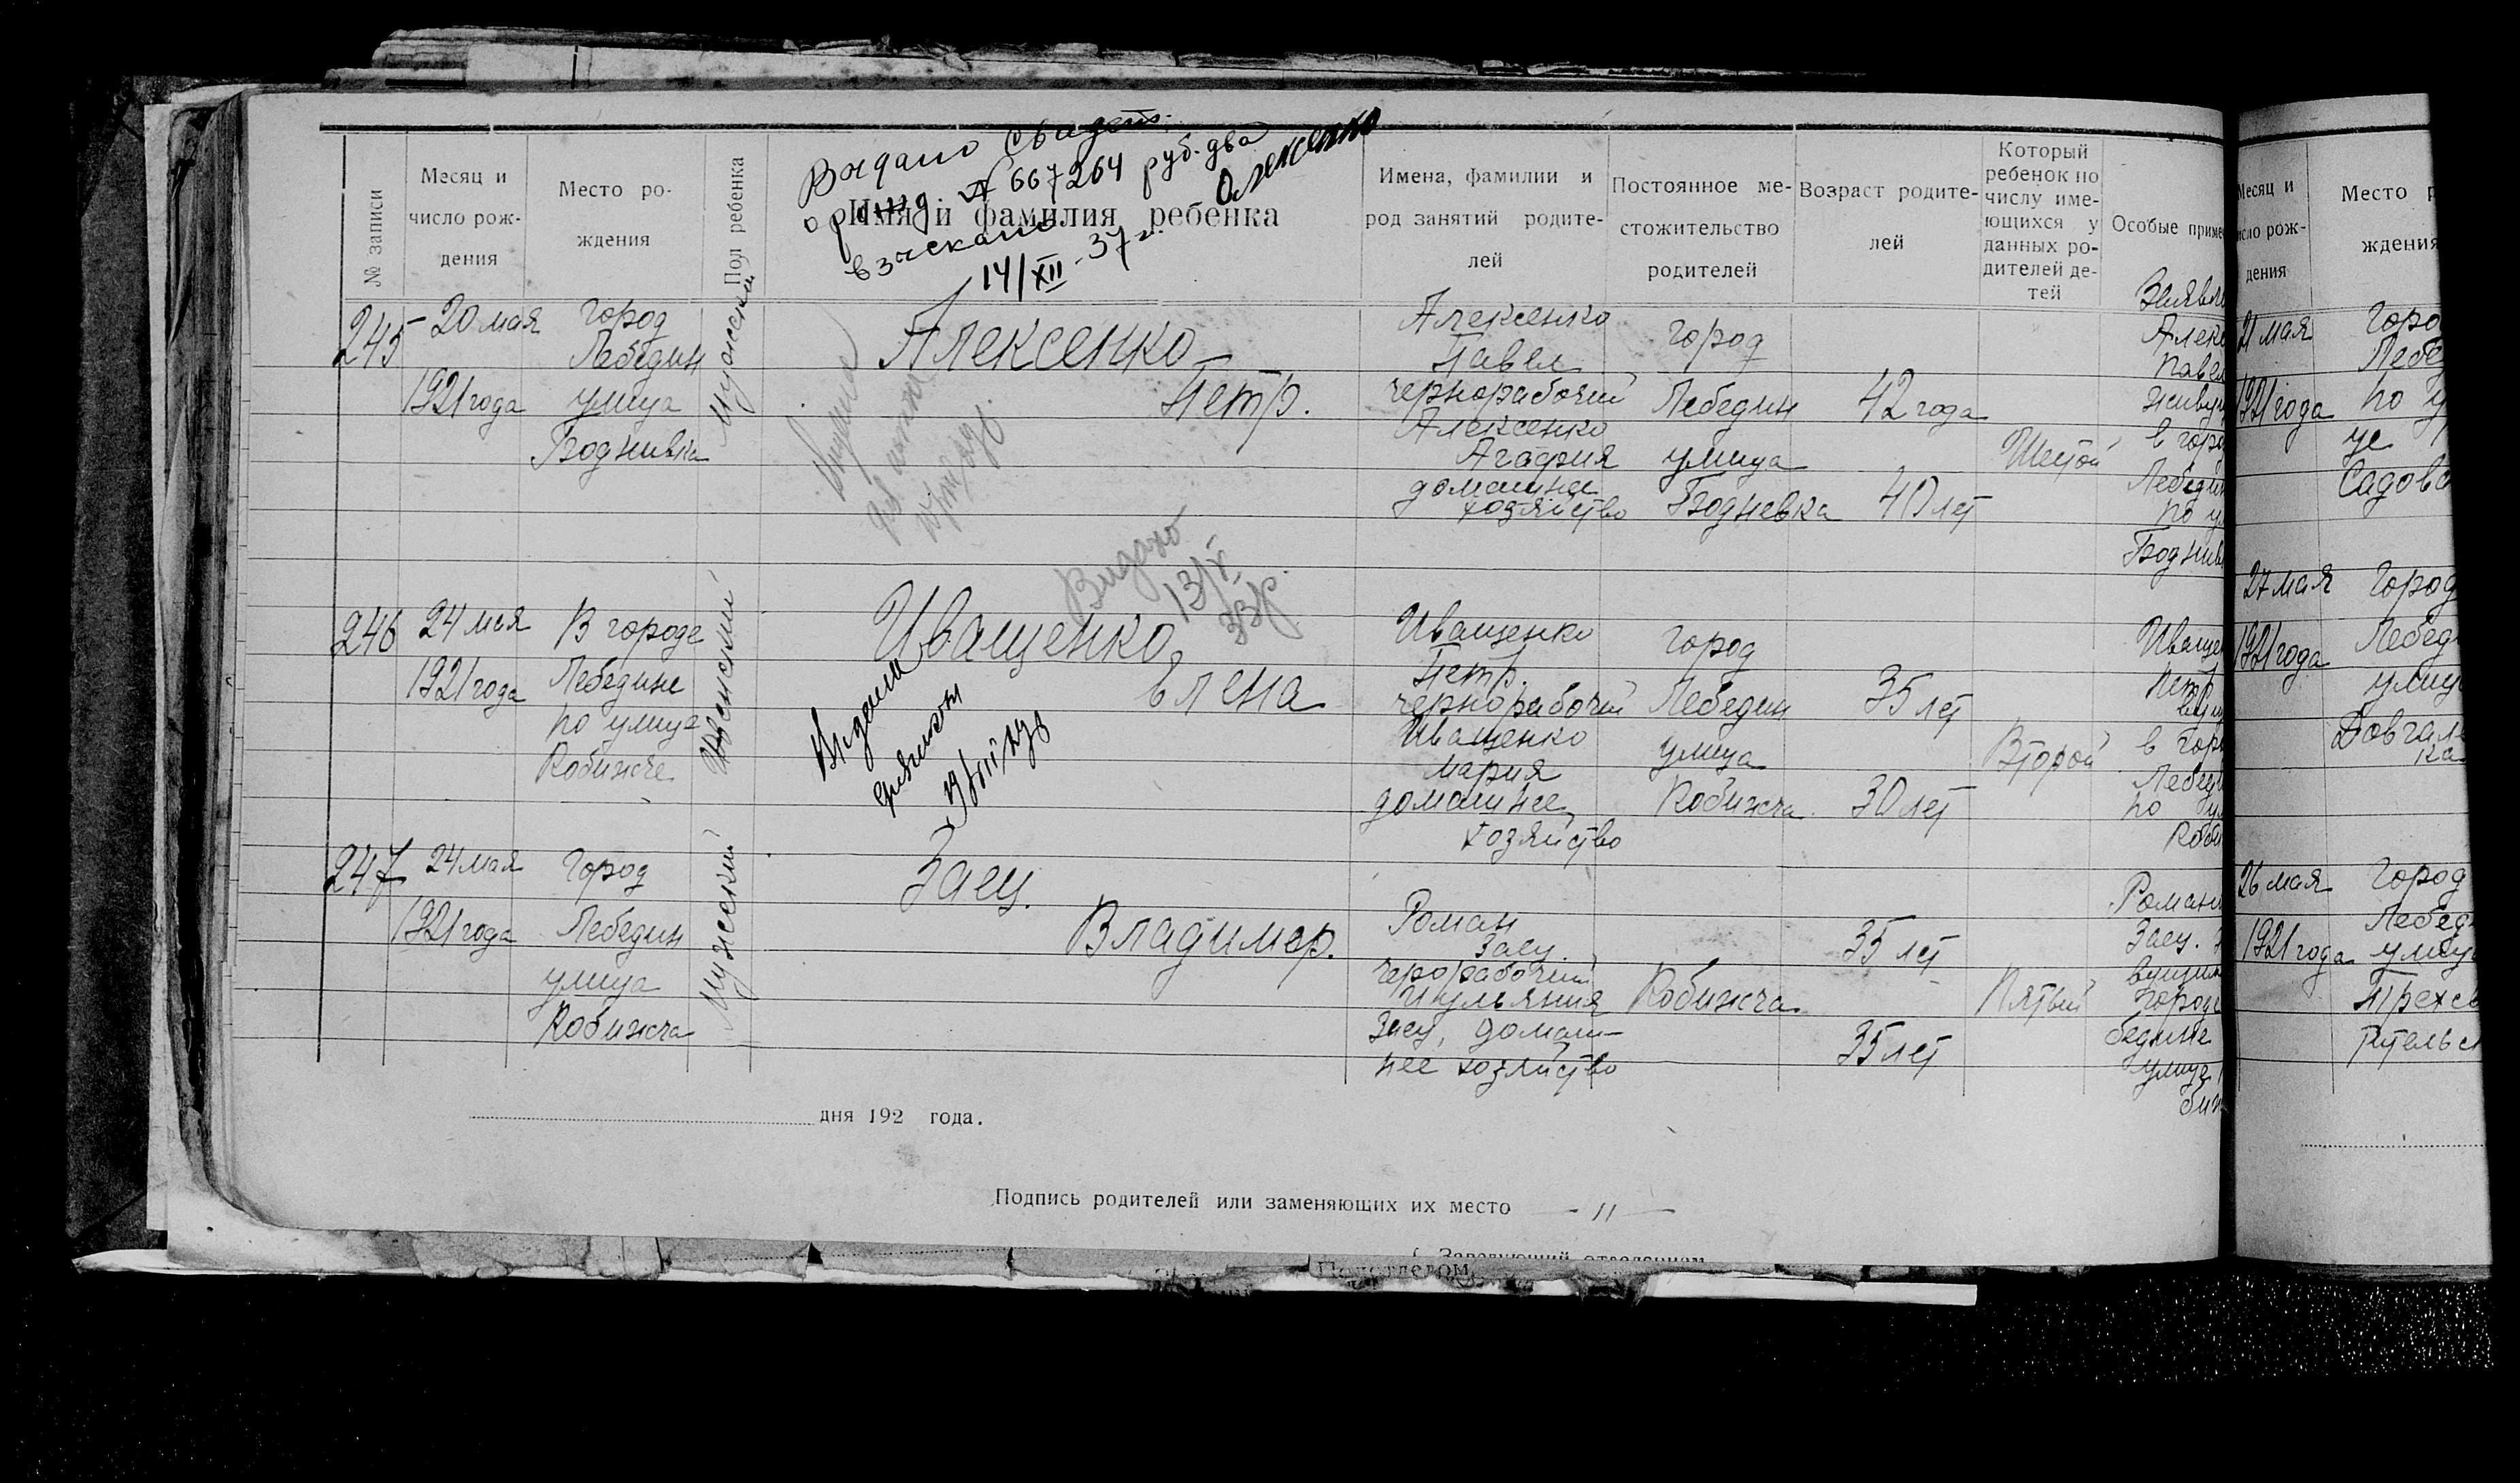 Выдано свидет.
о рожд. № 667264 руб. два
взыскано
Олексенко
14/XII-37 г.
№ записи
Месяц и
число рож-
дения
Место ро-
ждения
Пол ребенка
Имя и фамилия ребенка
Имена, фамилии и
род занятий родите-
лей
Постоянное ме-
стожительство
родителей
Возраст родите-
лей
Который
ребенок по
числу име-
ющихся у
данных ро-
дителей де-
тей
Особые приме
245
20 мая
1921 года
город
Лебедин
улица
Боднивка
Мужеский
Алексенко
Петр.
Алексенко
Павел
чернорабочий
Алексенко
Агафия
домашнее
хозяйство
город
Лебедин
улица
Бодневка
42 года
40 лет
Шестой
Заявл
Алекс
Павел
живущ
в горо
Лебедин
по ул
Боднив
Видано
13/X
33 р.
246
24 мая
1921 года
В городе
Лебедине
по улица
Кобижче
Женский
Иващенко
Елена
Видана
Иващенко
Петр.
чернорабочий
Иващенко
Мария
домашнее
хозяйство
город
Лебедин
улица
Кобижча
35 лет
30 лет
Второй
Иваще
Петр
в гор
Лебед
по ул
Коби
247
24 мая
1921 года
Город
Лебедин
улица
Кобижча
Мужеский
Заец.
Владимер.
Роман
Заец.
черорабочий
Иульяния
Заец, домаш-
нее хозяйство
Кобижча
35 лет
35 лет
Пятый
Роман
Заец.
городе
бедине
улице
биж
дня 192 года.
Подпись родителей или заменяющих их место — 11 —
Заведующий отделением
Подотделом
Месяц и
исло рож-
дения
Место р
ждения
21 мая
1921 года
Горо
Лебе
по у
це
Садово
27 мая
1921 года
Город
Лебед
улиц
Довгал
ка
26 мая
1921 года
Город
Лебед
улиц
Трехсв